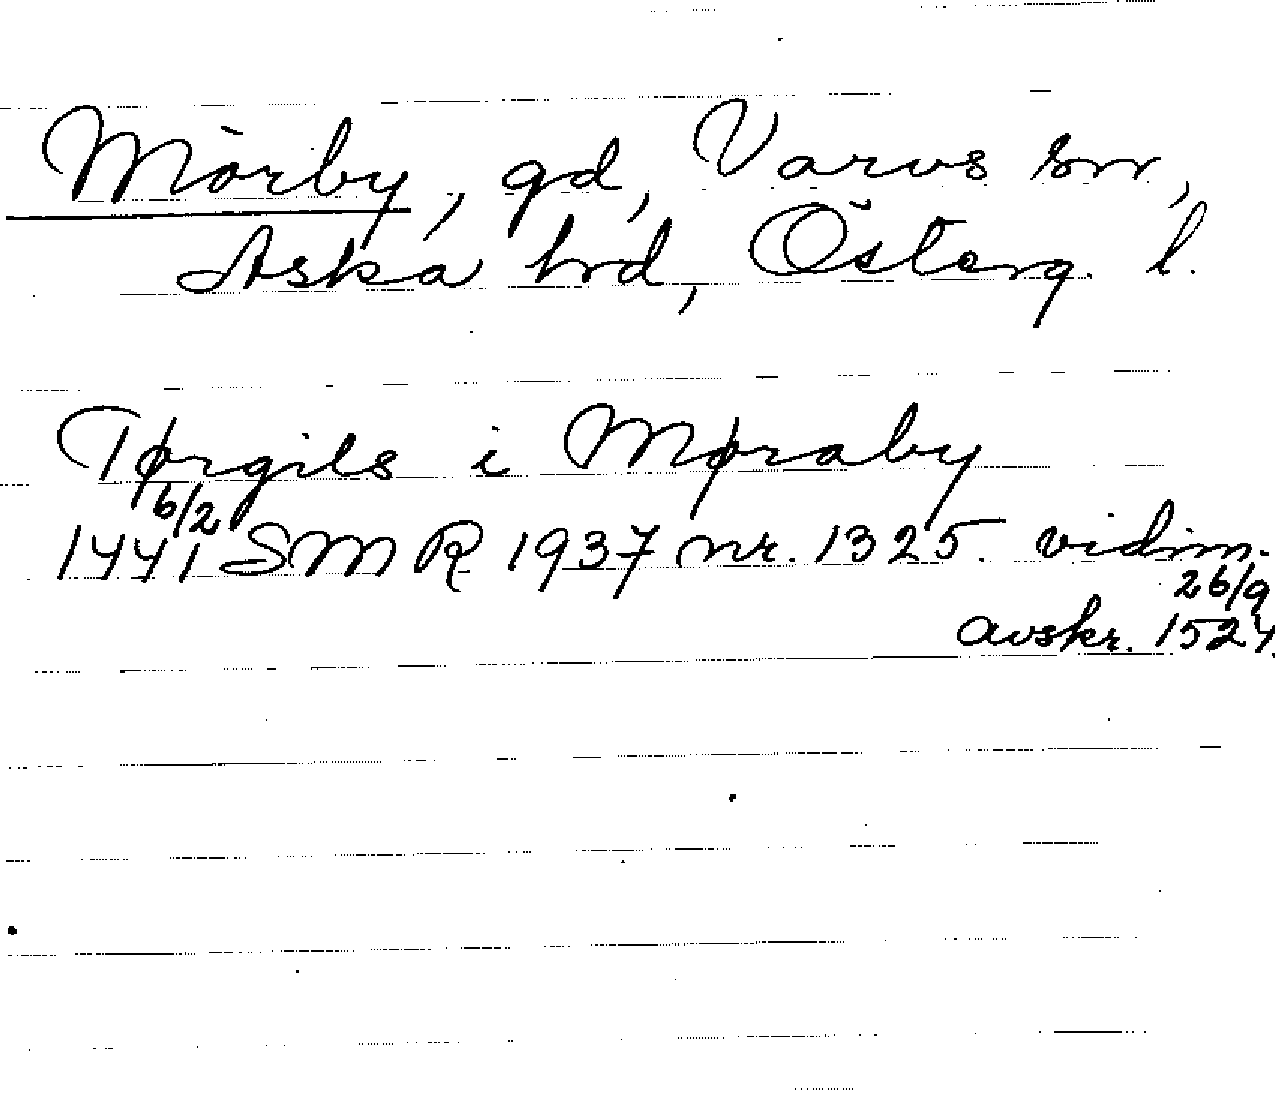 Mörby, gd, Varvs sn,
Aska hd, Österg. l.
Tørgils i Møraby
6/2
1441 SMR 1937 nr. 1325. vidim.
26/9
avskr. 1524.